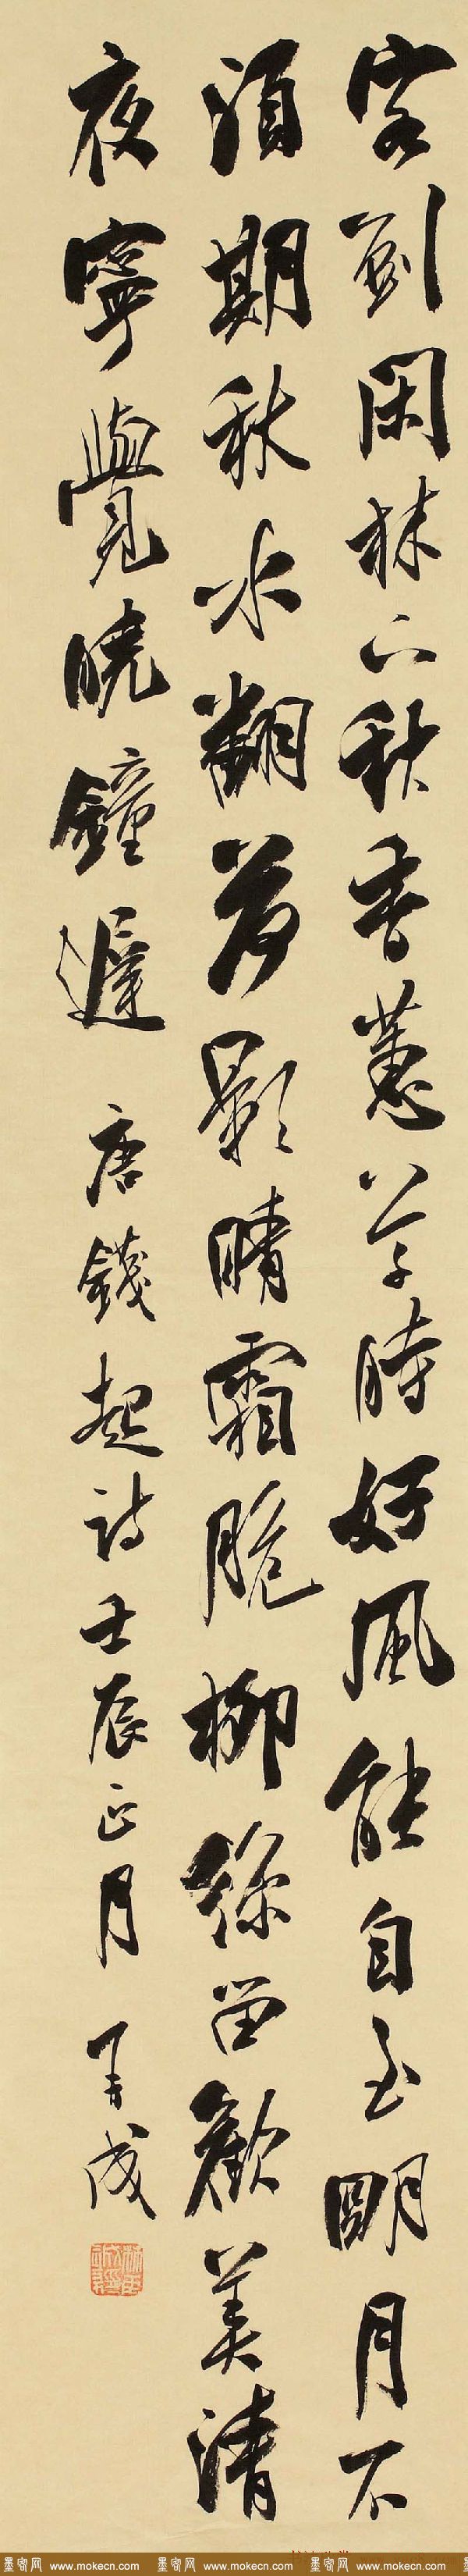 客到閑林下秋香蕙草時好風能自至明月不
須期秋水翻荷影晴霜脆柳絲留歡美清
夜寧覺曉鐘遲
唐錢起詩壬辰正月
成
墨客网 www.mokecn.com 墨客网 www.mokecn.com 墨客网 www.mokecn.com 墨客网